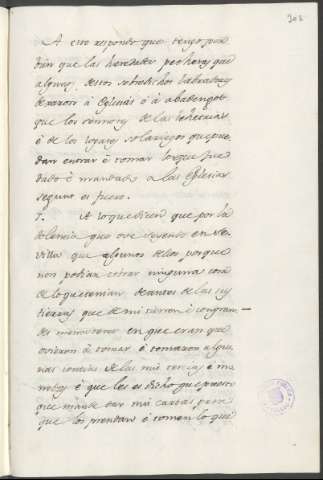 A esto respondo que tengo por
bien que las heredades pecheras que
algunos destos sobredichos labradores
dexaron á Eglesias ó á abadengos
que los señores de las behetrias
é de los logares solariegos que pue
dan entrar é tomar lo que fue
dado é mandado a las Eglesias
segunt es fuero.
7. A lo que dicen que por la
dolencia que ove seyendo en Se
villa que algunos dellos porque
non podian cobrar ninguna cosa
de lo que tenian de antes de las sus
tierras que de mi tienen é con gran
des menesteres en que eran que
ovieron á tomar é tomaron algu
nas contias de las mis rentas é
é que les es dicho que
que mande dar mis cartas para
que los prendan é tomen lo que